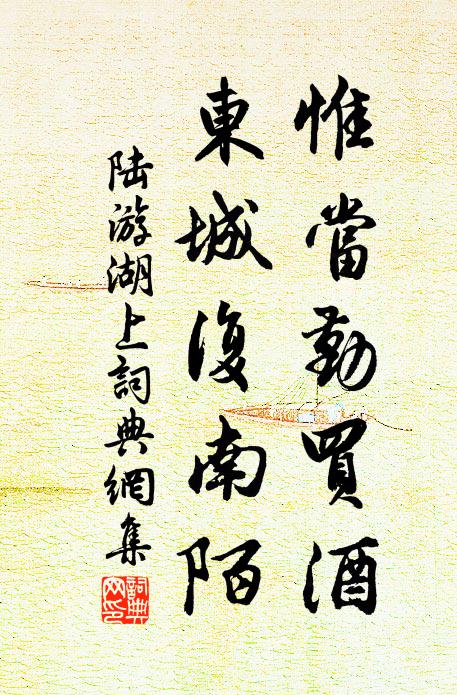 惟當勤買酒
東城復南陌
陆游湖上詞典網集
詞典網印